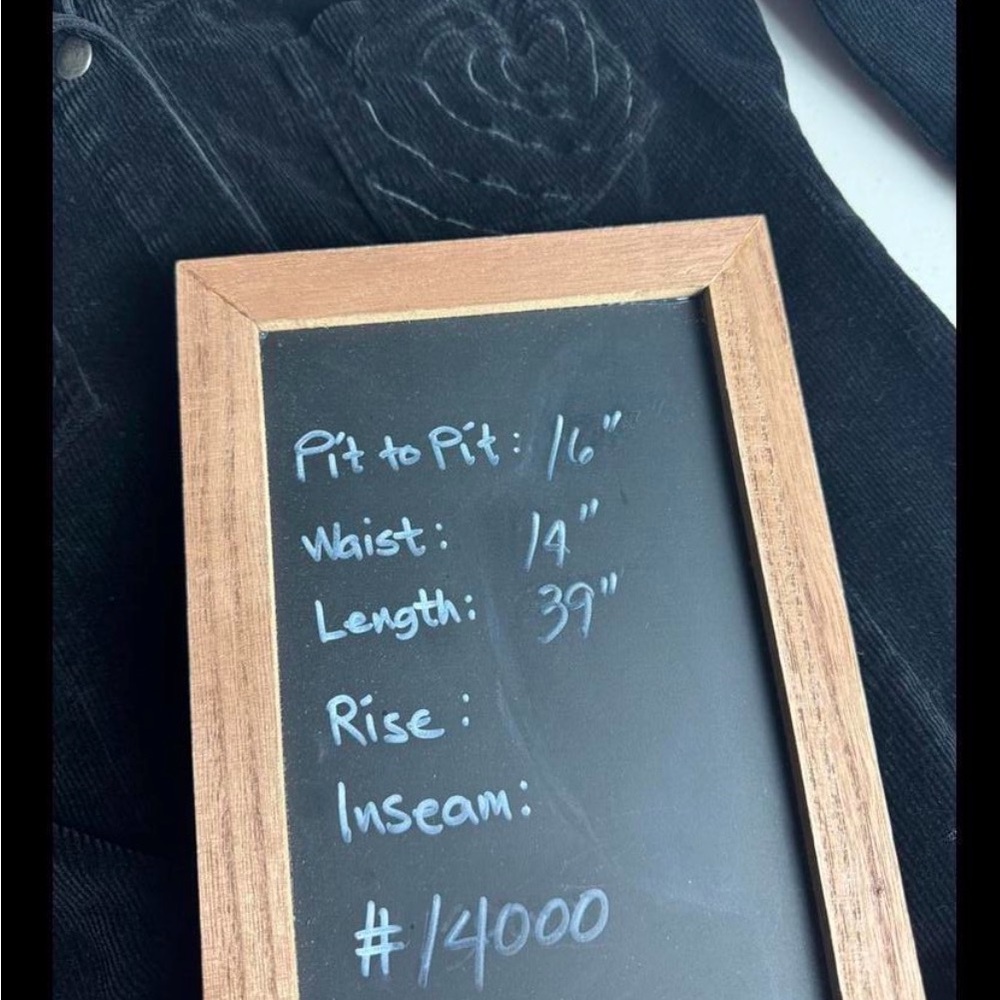 Pit to Pit: 16"
Waist: 14"
Length: 39"
Rise:
Inseam:
#14000